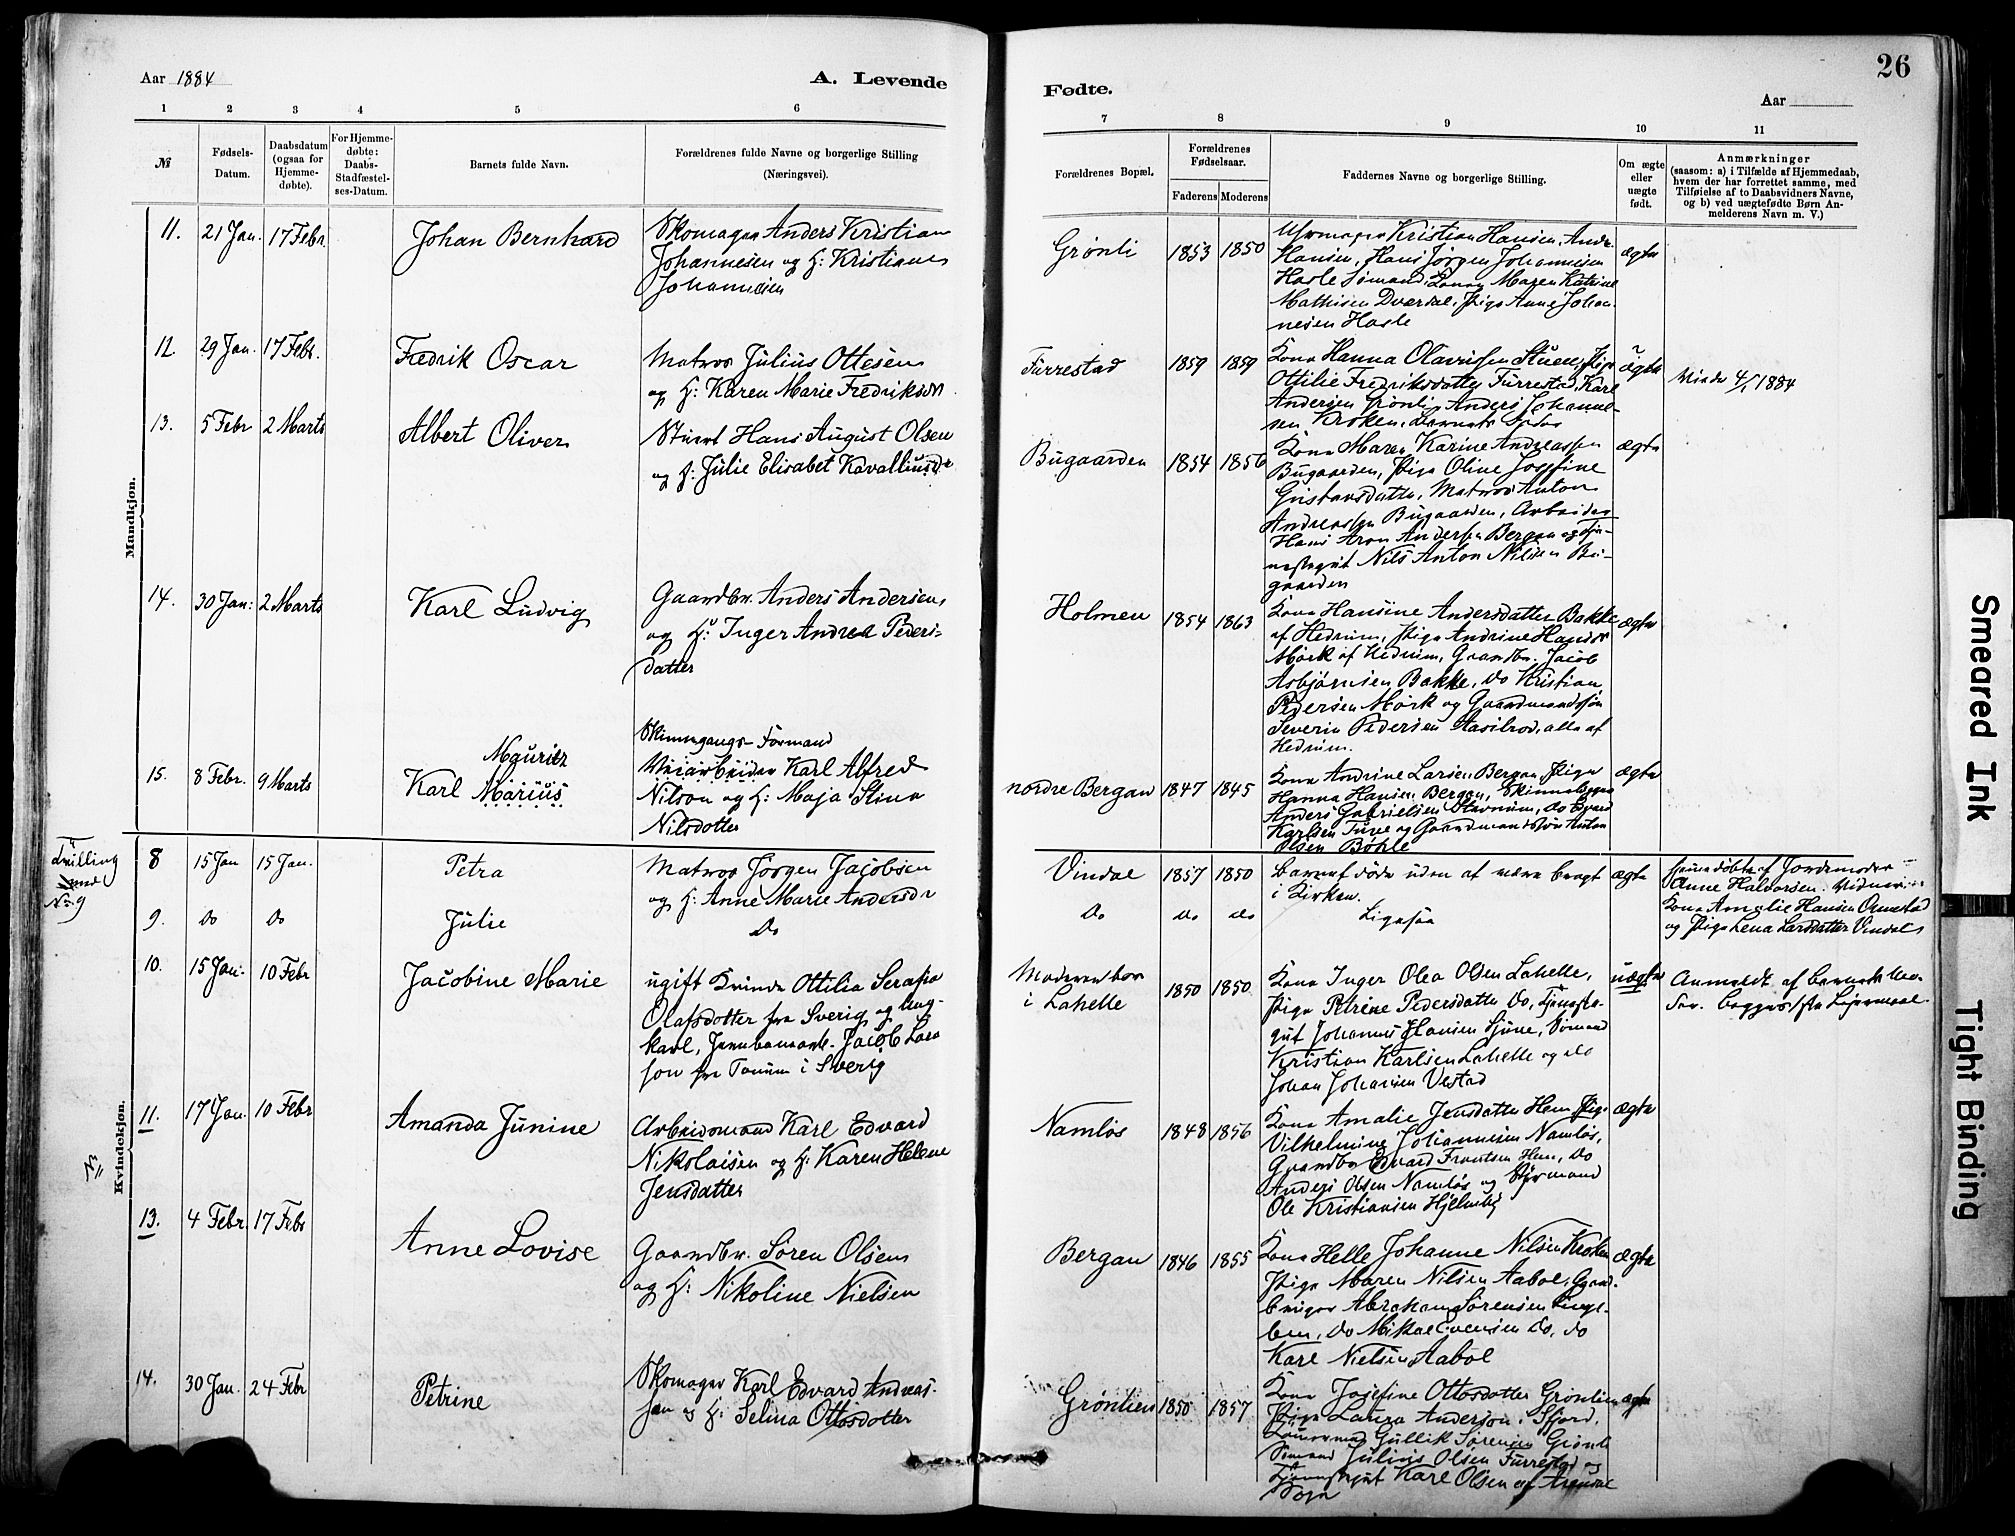 26
Aar 1884
A. Levende
Fødte.
Aar
1 2 3 4 5 6
7 8 9 10 11
№
Fødsels-
Datum.
Daabsdatum
(ogsaa for
Hjemme-
døbte).
For Hjemme-
døbte:
Daabs-
Stadfæstel-
ses-Datum.
Barnets fulde Navn.
Forældrenes fulde Navne og borgerlige Stilling
(Næringsvei).
Forældrenes Bopæl.
Forældrenes
Fødselsaar.
Faderens Moderens
Faddernes Navne og borgerlige Stilling.
Om ægte
eller
uægte
født.
Anmærkninger
(saasom: a) i Tilfælde af Hjemmedaab,
hvem der har forrettet samme, med
Tilføielse af to Daabsvidners Navne,
og b) ved uægtefødte Børn An-
melderens Navn m. V.)
Mandkjøn.
11. 21 Jan. 17 Febr. Johan Bernhard
Skomager Anders Kristian
Johannesen og H: Kristiane
Johannesen
Grønli 1853 1850
Urmager Kristian Hansen, Andr.
Hansen, Hans Jørgen Johannesen
Hasle Sømand, Kona Maren Katrine
Mathisen Dverdal, Pige Anne Johan-
nesen Hasle
ægte
12. 29 Jan. 17 Febr. Fredrik Oscar
Matros Julius Ottesen
og H: Karen Marie Fredriksdr
Furrestad 1859 1859
Kona Hanna Olavesen Stuene, Pige
Ottilie Fredriksdatter Furrestad, Karl
Andersen Grønli, Anders Johanne-
sen Kroken, Barnets Fader
ægte
Viede 4/1 1884
13. 5 Febr 2 Marts Albert Oliver
Stuert Hans August Olsen
og H: Julie Elisabet Kavalliusdr
Bugaarden 1854 1856
Kona Maren Karine Andreassen
Bugaarden, Pige Oline Josefine
Gustavsdatter, Matros Anton
Andreassen Bugaarden, Arbeider
Hans Aron Andersen Bergan og Tje-
nestegut Nils Anton Nilsen Bu-
gaarden
ægte
14. 30 Jan: 2 Marts Karl Ludvig
Gaardbr. Anders Andersen,
og H: Inger Andrea Peders-
datter
Holmen 1854 1863
Kona Hansine Andersdatter Bakke
af Hedrum, Pige Andrine Hansdr
Mørk af Hedrum, Gaardbr. Jacob
Asbjørnsen Bakke, do Kristian
Pedersen Mørk og Gaardmandssøn
Severin Pedersen Aasilrod, alle af
Hedrum.
ægte
15. 8 Febr. 9 Marts Karl Marius
Mauritz
Skinnegangs-Formand
Veiarbeider Karl Alfred
Nilson og H: Maja Stina
Nilsdotter
nordre Bergan 1847 1845
Kona Andrine Larsen Bergan, Pige
Hanna Hansen, Bergan, Skinnelægger
Anders Gabrielsen Stavnum, do Edvard
Karlsen Tuve og Gaardmandssøn Anton
Olsen Bøhle
ægte
Kvindekjøn.
Tvilling
8 15 Jan 15 Jan. Petra
Matros Jørgen Jacobsen
og H: Anne Marie Andersdr
Vindal 1857 1850
Barnet døde uden at være bragt
i Kirken.
ægte
Hjemmedøbt af Jordemoder
Anne Halvorsen. Vidner:
Kona Amalie Hansen Ormestad
og Pige Lena Larsdatter Vindal
9. Do Do Julie
Do
Do do do
Ligesaa
10. 15 Jan. 10 Febr Jacobine Marie
ugift Kvinde Ottilia Serafia
Olafsdotter fra Sverig og Ung-
karl, Jernbanearb. Jacob Lars
son fra Tanum i Sverig
Moderen bor
i Lahelle
1850 1850
Kona Inger Olea Olsen Lahelle,
Pige Petrine Pedersdatter Do, Tjeneste-
gut Johannes Hansen Sjune, Sømand
Kristian Karlsen Lahelle og do
Johan Johansen Vestad
uægte
Anmeldt af Barnets Mo-
der. Begges 1ste Leiermaal.
11. 17 Jan. 10 Febr Amanda Junine
Arbeidsmand Karl Edvard
Nikolaisen og H: Karen Helene
Jensdatter
Namløs 1848 1856
Kona Amalie Jensdatter Hem, Pige
Vilhelmine Johannesen Namløs,
Gaardbr Edvard Frantsen Hem, Do
Anders Olsen Namløs og Styrmand
Ole Kristiansen Hjelmby
ægte
13. 4 Febr. 17 Febr Anne Lovise
Gaardbr. Søren Olsen
og H: Nikoline Nielsen
Bergan 1846 1855
Kona Helle Johanne Nilsen Kroken
Pige Maren Nilsen Aabol, Gaard-
bruger Abraham Sørensen Ringe-
ben, do Mikael Evensen do, do
Karl Nielsen Aabol
ægte
14. 30 Jan. 24 Febr Petrine
Skomager Karl Edvard Andreas-
sen og H: Selina Ottosdotter
Grønlien 1850 1857
Kona Josefine Ottosdotter Grønlien
Pige Laura Anderson i Sfjord,
Gullik Sørensen Grønli
Sømand Julius Olsen Furrestad og
Tjenestegut Karl Olsen af Arendal
Sogn
ægte
Smeared Ink
Tight Binding